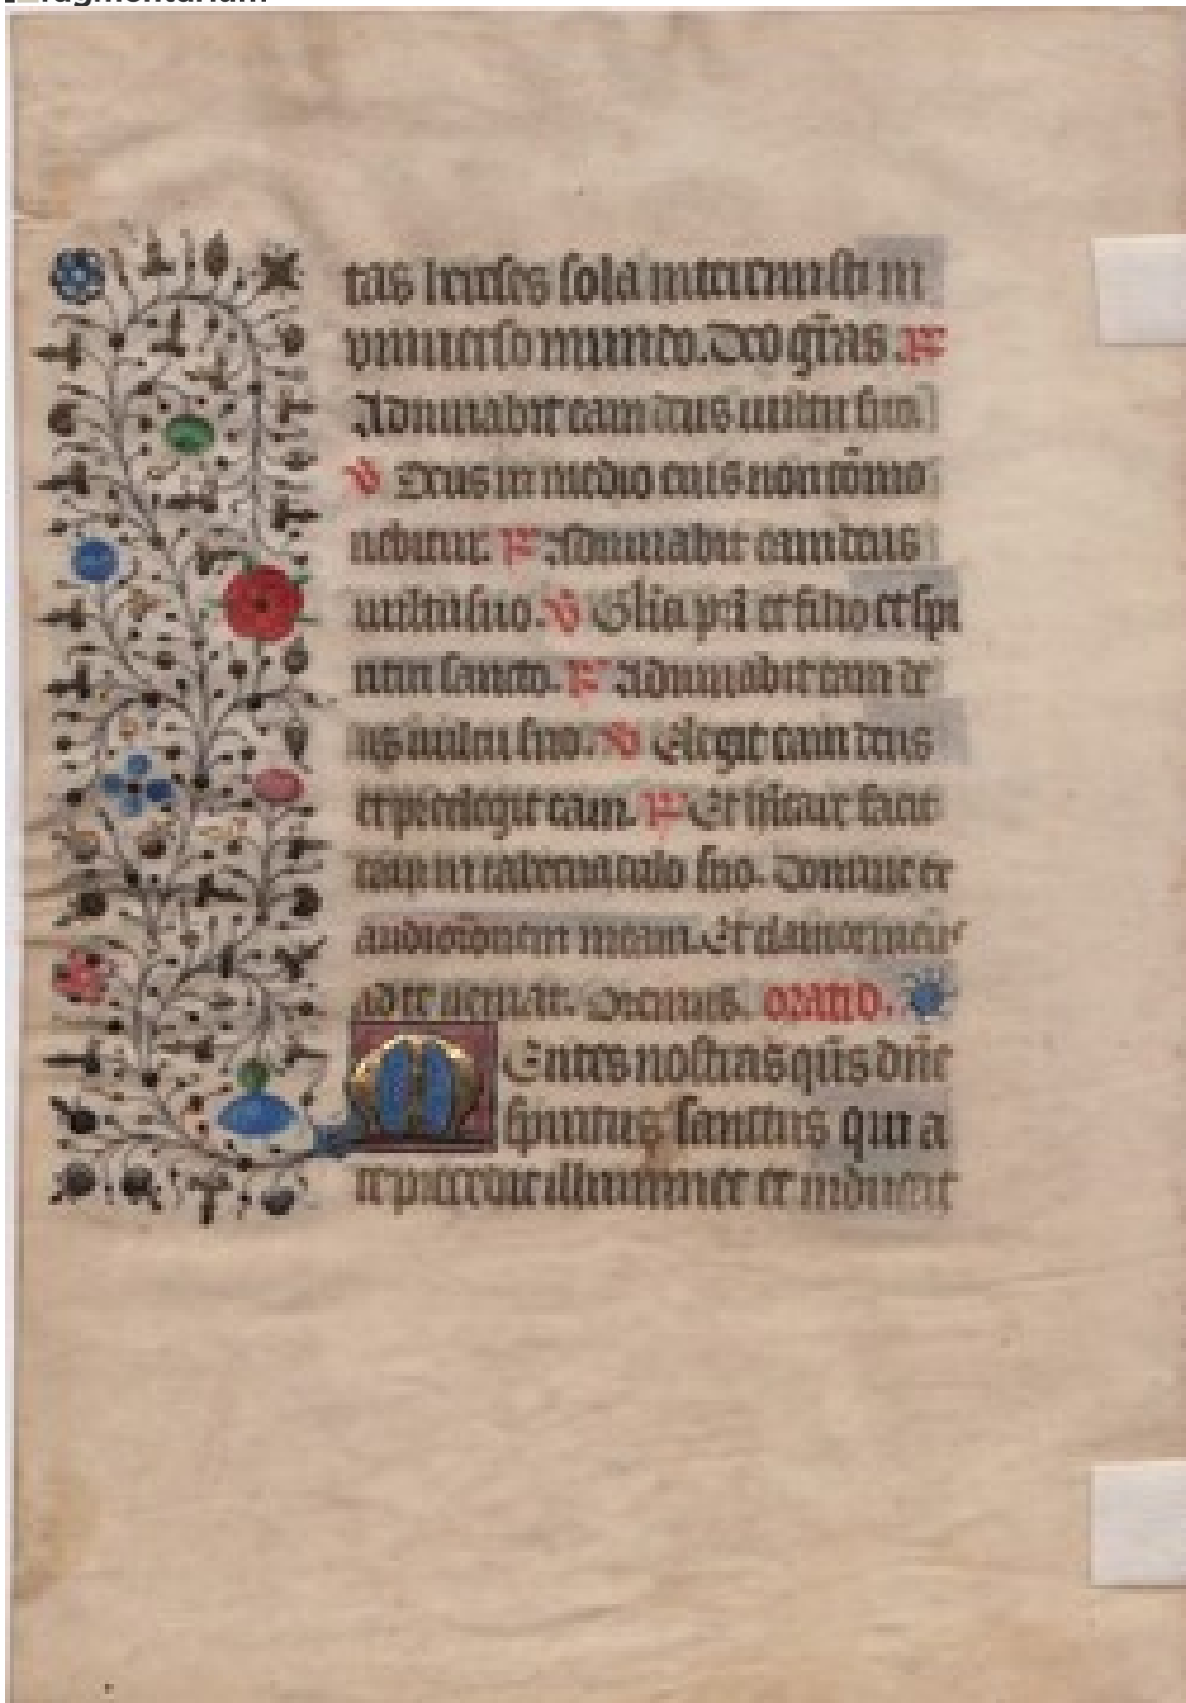 fragmentarium
tas hereses sola interemisti in
vniuerso mundo. Deo gr̄as. R̄
Adiuuabit eam deus uultu suo.
V Deus in medio eius non cōmo
uebitur. R̄ Adiuuabit eam deus
uultu suo. V Gl̄ia pr̄i et filio et spi
ritui sancto. R̄ Adiuuabit eam de
us uultu suo. V Elegit eam deus
et preelegit eam. R̄ Et habitare facit
eam in tabernaculo suo. Domine ex
audi or̄onem meam. Et clamor meus
ad te ueniat. Oremus. oratio.
Mentes nostras qūs dn̄e
spiritus sanctus qui a
te procedit illuminet et inducat